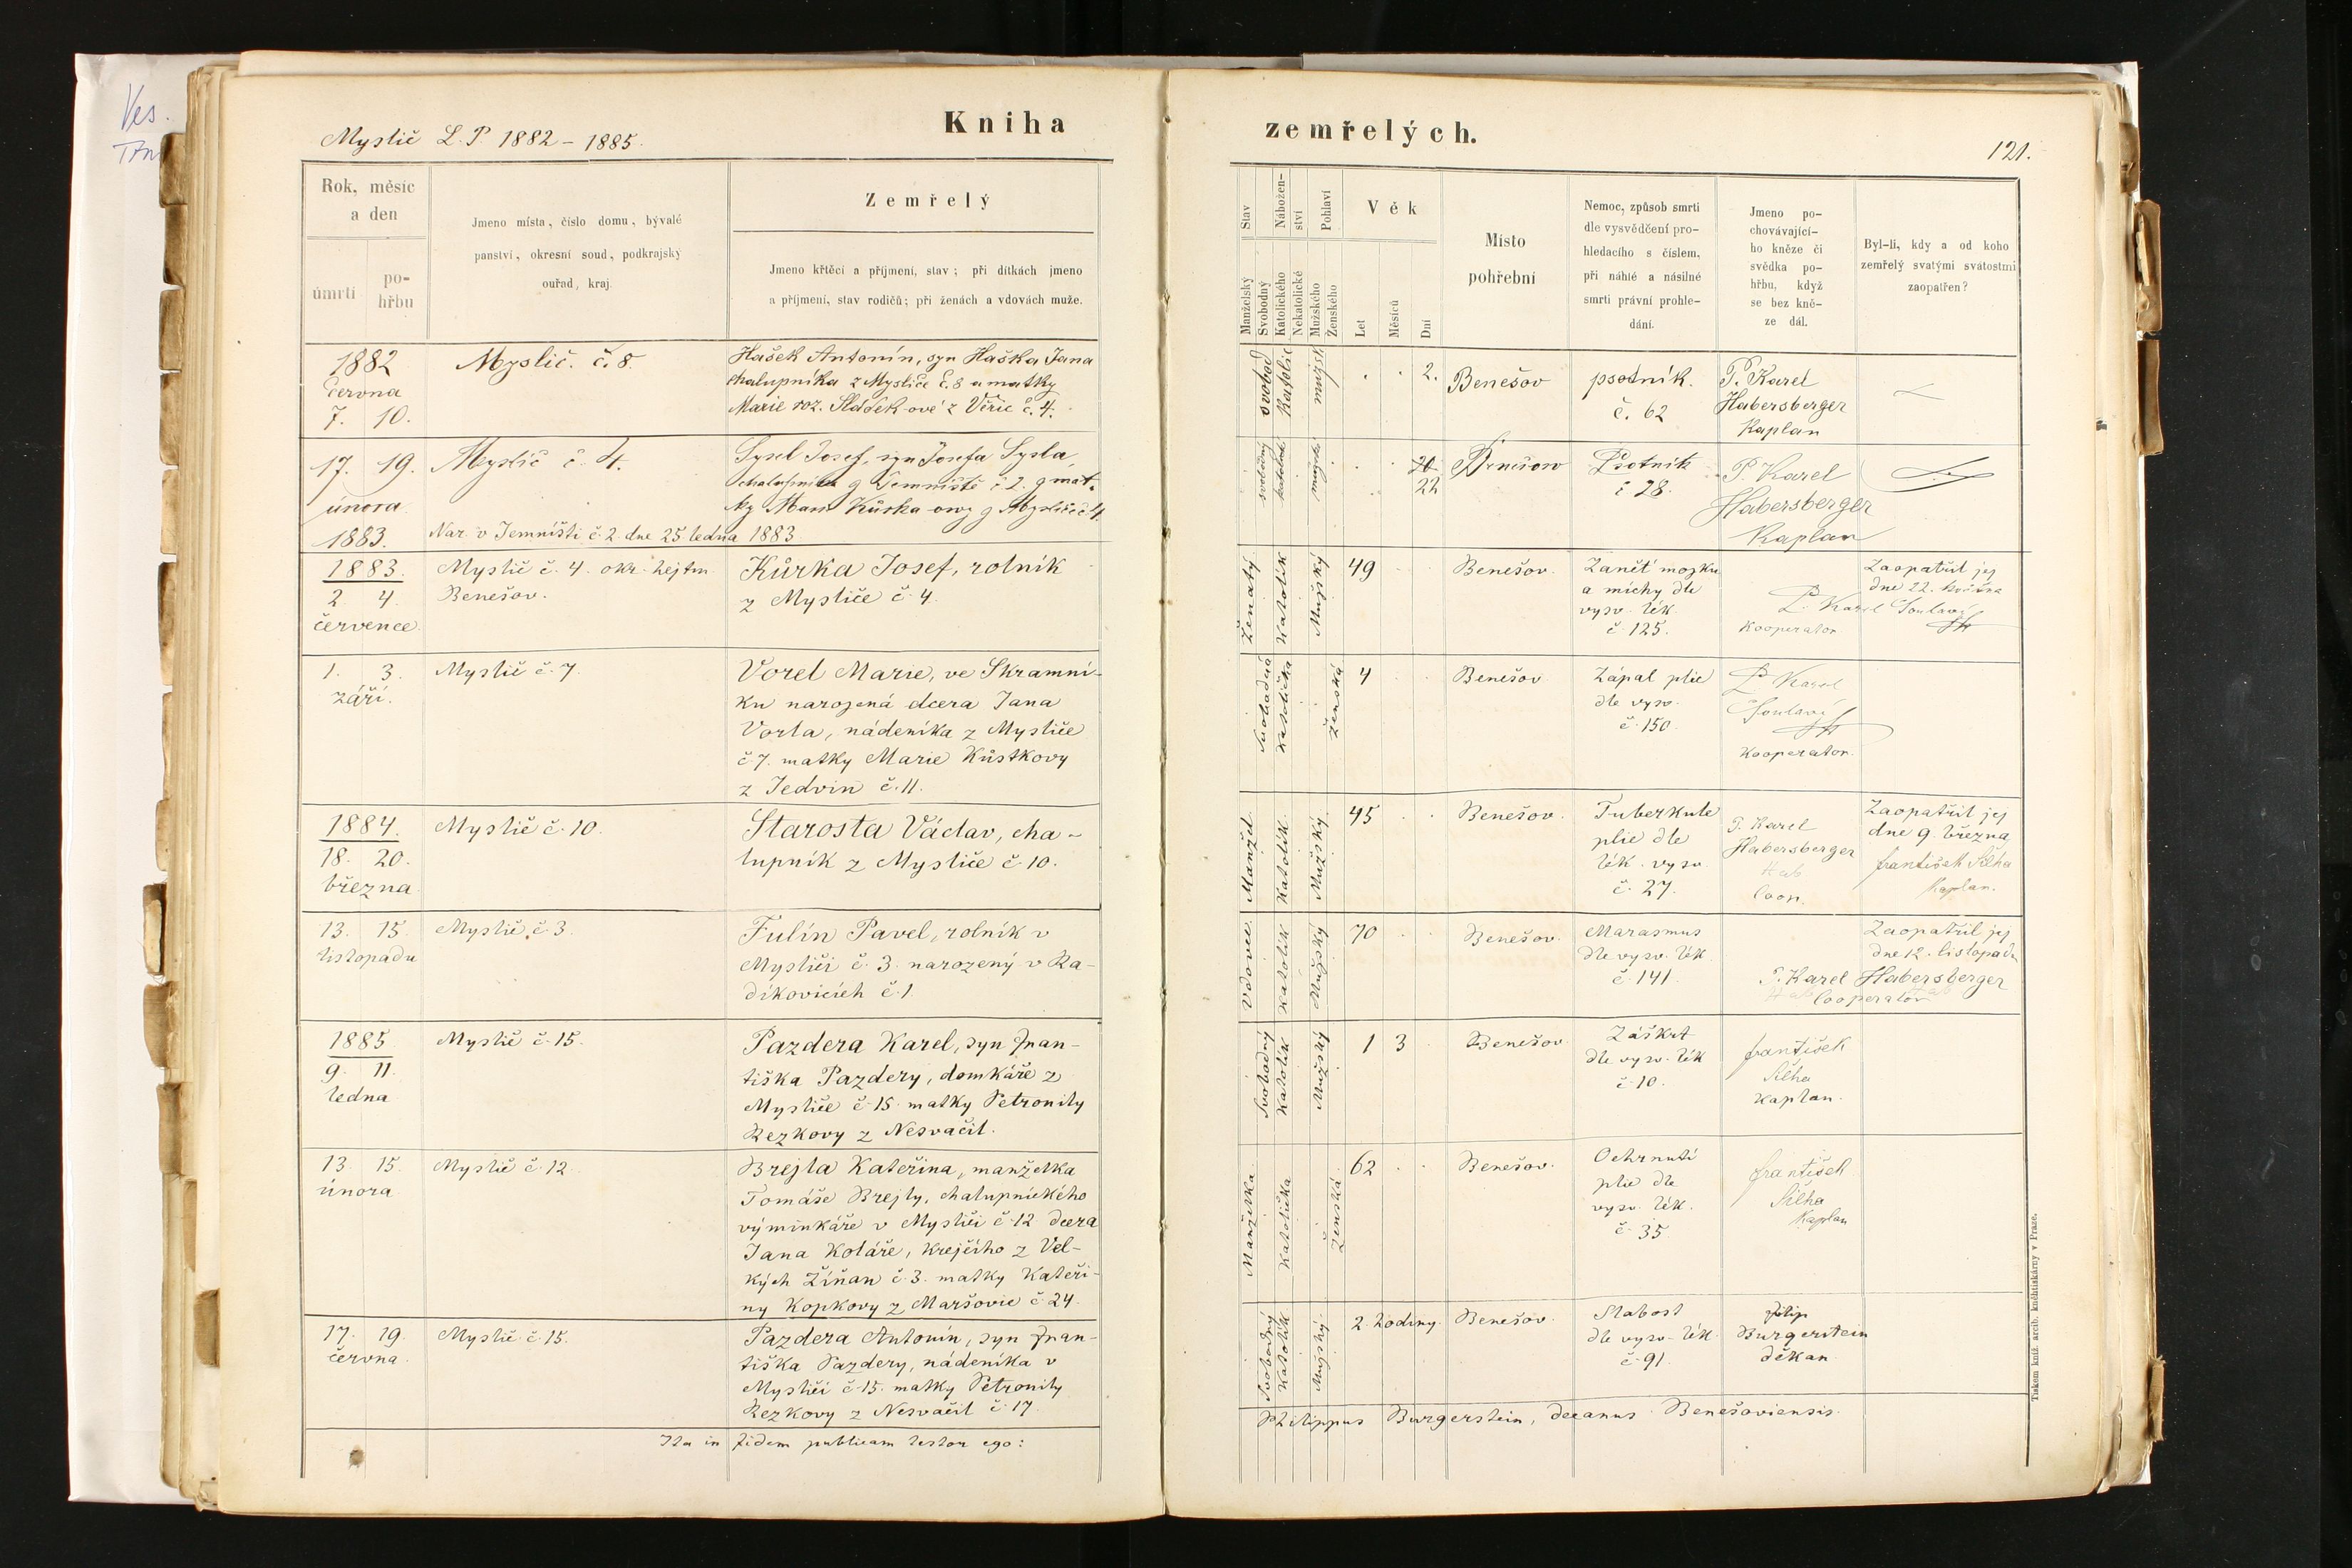 Ves.
Myslič L. P. 1882 – 1885.
Kniha
zemřelých.
121.
Rok, měsíc
a den
úmrtí
po-
hřbu
Jmeno místa, číslo domu, bývalé
panství, okresní soud, podkrajský
ouřad, kraj.
Zemřelý
Jmeno křtěcí a příjmení, stav; při dítkách jmeno
a příjmení, stav rodičů; při ženách a vdovách muže.
Stav
Manželský
Svobodný
Nábožen-
ství
Katolického
Nekatolické
Pohlaví
Mužského
Ženského
Věk
Let
Měsíců
Dní
Místo
pohřební
Nemoc, způsob smrti
dle vysvědčení pro-
hledacího s číslem,
při náhlé a násilné
smrti právní prohle-
dání.
Jmeno po-
chovávající-
ho kněze či
svědka po-
hřbu, když
se bez kně-
ze dál.
Byl-li, kdy a od koho
zemřelý svatými svátostmi
zaopatřen?
1882
června
7. 10.
Myslič. č. 8.
Hašek Antonín, syn Haška Jana
chalupníka z Mysliče č. 8 a matky
Marie roz. Sládek-ové z Věřic č. 4.
svobod
Katolic
mužsk
2.
Benešov
psotník.
č. 62
P. Karel
Habersberger
Kaplan
17. 19.
února
1883.
Myslič č. 4.
Sysel Josef, syn Josefa Sysla,
chalupníka z Jemniště č 2. z mat-
ky Marie Kůrka-ovy z Mysliče č 4.
Nar. v Jemništi č. 2. dne 25 ledna 1883
svobodný
katolík
mužský
22
Benešov
Psotník
č 28.
P. Karel
Habersberger
Kaplan
1883.
2. 4.
července.
Myslič č. 4. okr. hejtm
Benešov.
Kůrka Josef, rolník
z Mysliče č. 4.
Ženatý
Katolík
Mužský
49
Benešov.
Zanětí mozku
a míchy dle
vysv. lék.
č. 125.
P. Karel Soulavý
Kooperator
Zaopatřil jej
dne 22. května
1. 3.
září.
Myslič č. 7.
Vorel Marie, ve Skramní-
ku narozená dcera Jana
Vorla, nádeníka z Mysliče
č 7. matky Marie Kůstkovy
z Jedvin č. 11.
Svobodná
Katolička
Ženská
4
Benešov
Zápal plic
dle vysv.
č. 150.
P. Karel
Soulavý
Kooperator.
1884.
18. 20.
března
Myslič č. 10.
Starosta Václav, cha-
lupník z Mysliče č. 10.
Manžel.
Katolík.
Mužský.
45
Benešov.
Tuberkule
plic dle
lék. vysv.
č. 27.
P. Karel
Habersberger
Coop.
Zaopatřil jej
dne 9. března
František Šilha
Kaplan.
13. 15.
listopadu
Myslič č. 3.
Fulín Pavel, rolník v
Mysliči č. 3. narozený v Ra-
díkovicích č. 1.
Vdovec.
Katolík
Mužský
70
Benešov.
Marasmus
dle vysv. lék.
č. 141.
P. Karel Habersberger
Cooperator
Zaopatřil jej
dne 12. listopadu
1885
9. 11.
ledna
Myslič č. 15.
Pazdera Karel, syn Fran-
tiška Pazdery, domkáře z
Mysliče č. 15. matky Petronily
Rezkovy z Nesvačil.
Svobodný
Katolík
Mužský
1 3
Benešov.
Záškrt
dle vysv. lék
č. 10.
František
Šilha
Kaplan.
13. 15.
února
Myslič č. 12.
Brejla Kateřina, manželka
Tomáše Brejly, chalupnického
výminkáře v Mysliči č. 12. dcera
Jana Koláře, krejčího z Vel-
kých Žíňan č. 3. matky Kateři-
ny Kopkovy z Maršovic č. 24.
Manželka
Katolička
Ženská.
62
Benešov.
Ochrnutí
plic dle
vysv. lék.
č. 35
František
Šilha
Kaplan
17. 19.
června.
Myslič č. 15.
Pazdera Antonín, syn Fran-
tiška Pazdery, nádeníka v
Mysliči č. 15. matky Petronily
Rezkovy z Nesvačil č. 17.
Svobodný
Katolík
Mužský.
2 hodiny.
Benešov.
Slabost
dle vysv. lék.
č. 91.
Filip
Burgerstein
děkan
Ita in fidem publicam testor ego:
Philippus Burgerstein, decanus Benešoviensis.
Tiskem kníž. arcib. knihtiskárny v Praze.